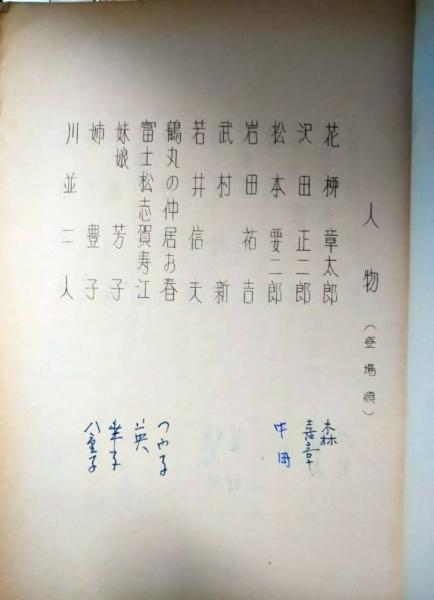 人物（登場順）
花柳章太郎
沢田正二郎
松本要二郎
岩田祐吉
武村新
若井信夫
鶴丸の仲居お春
富士松志賀寿江
妹娘 芳子
姉 豊子
川並二人
森
喜章
中田
つや子
英
幸子
八重子